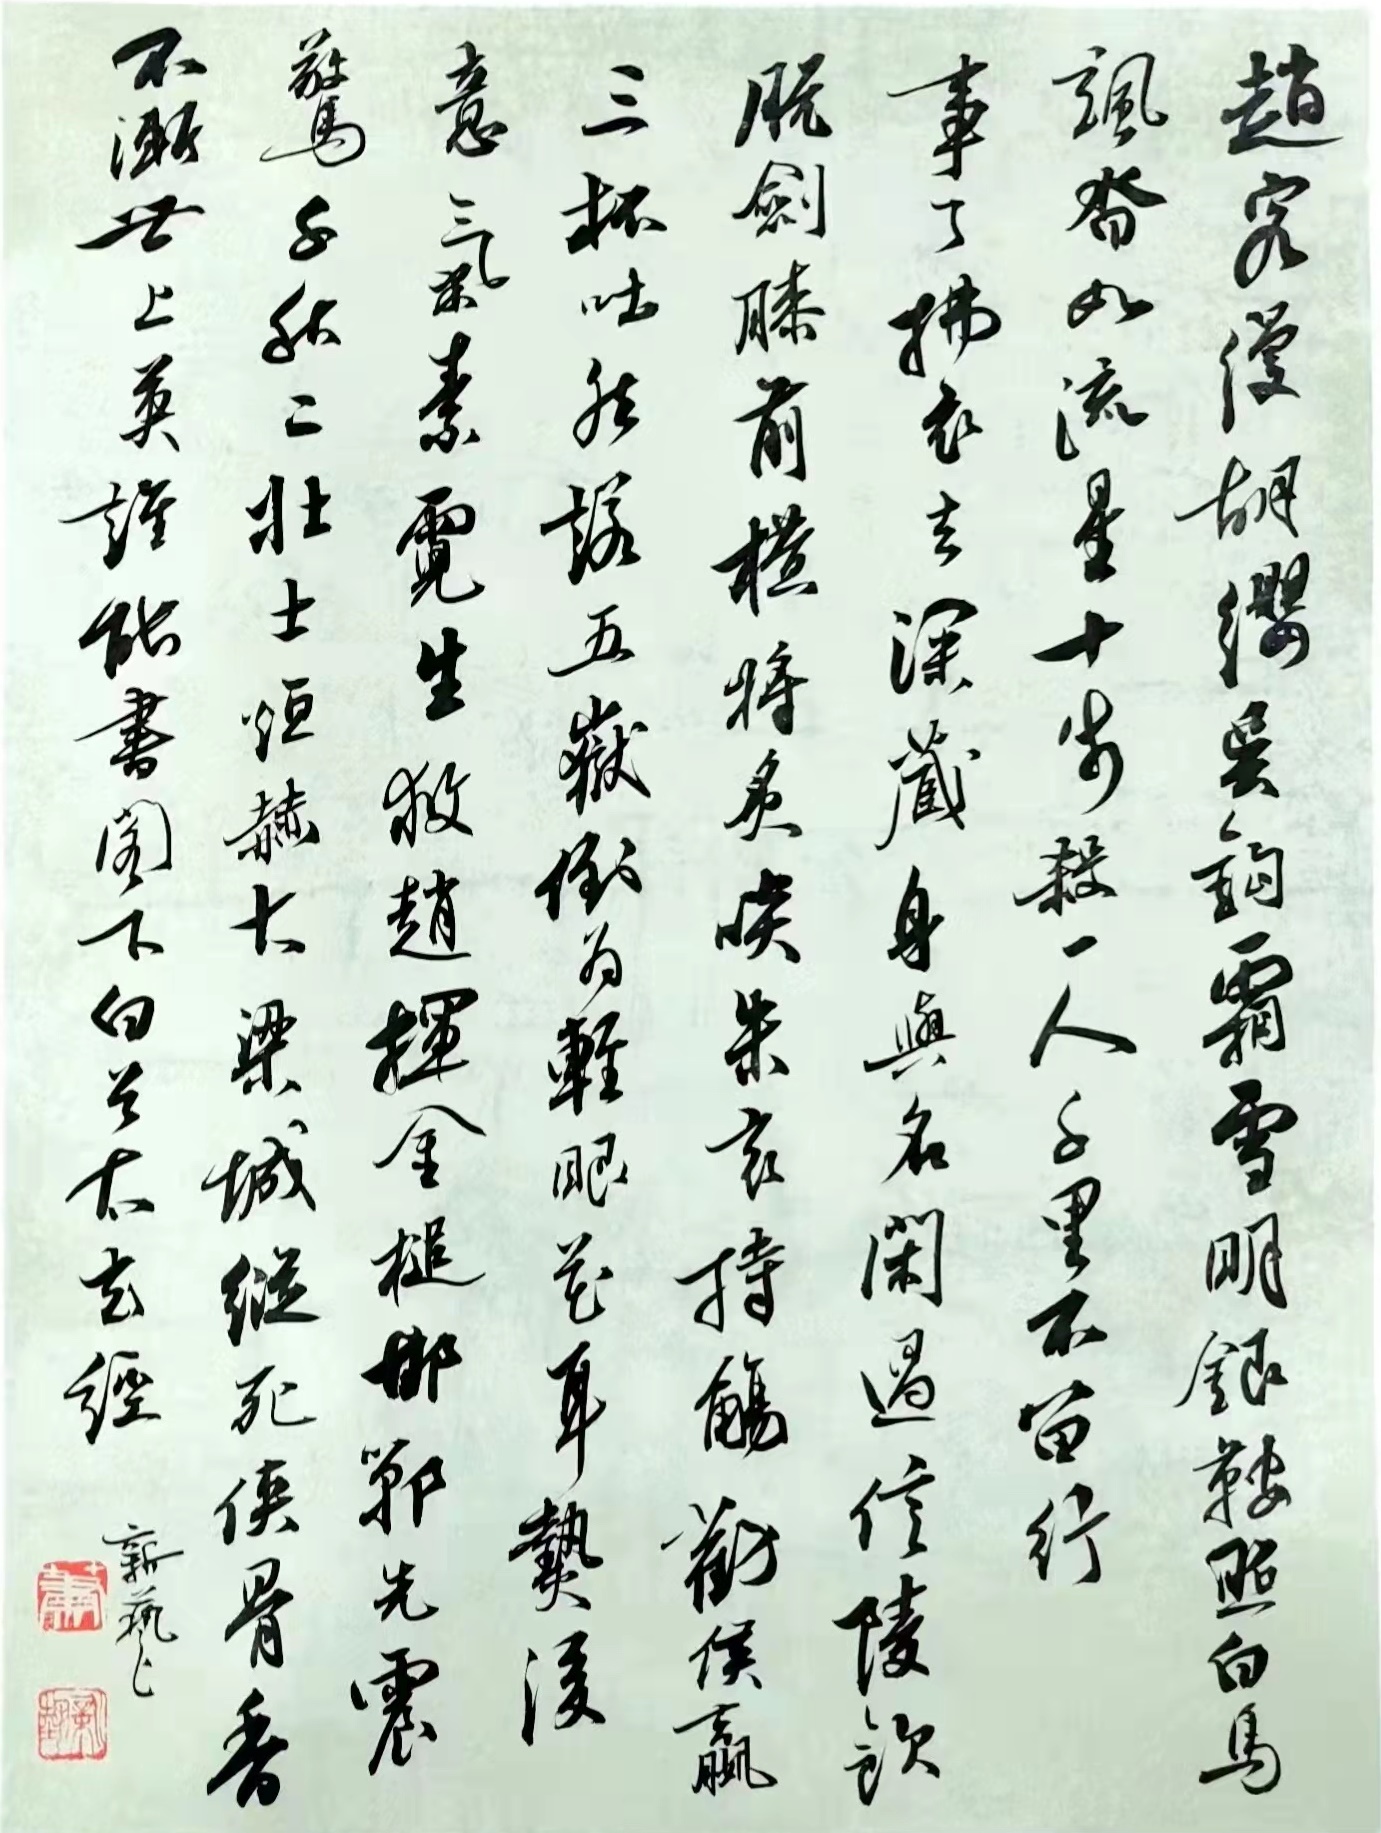 趙客縵胡纓吳鉤霜雪明銀鞍照白馬
颯沓如流星十步殺一人千里不留行
事了拂衣去深藏身與名閑過信陵飲
脫劍膝前橫將炙啖朱亥持觴勸侯嬴
三杯吐然諾五嶽倒為輕眼花耳熱後
意氣素霓生救趙揮金槌邯鄲先震
驚千秋二壯士烜赫大梁城縱死俠骨香
不慚世上英誰能書閣下白首太玄經
新藝